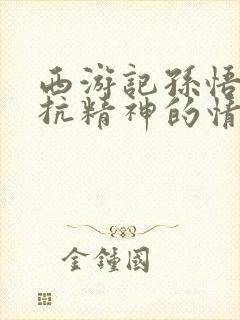 西游記孫悟
抗精神的情
金鍾國